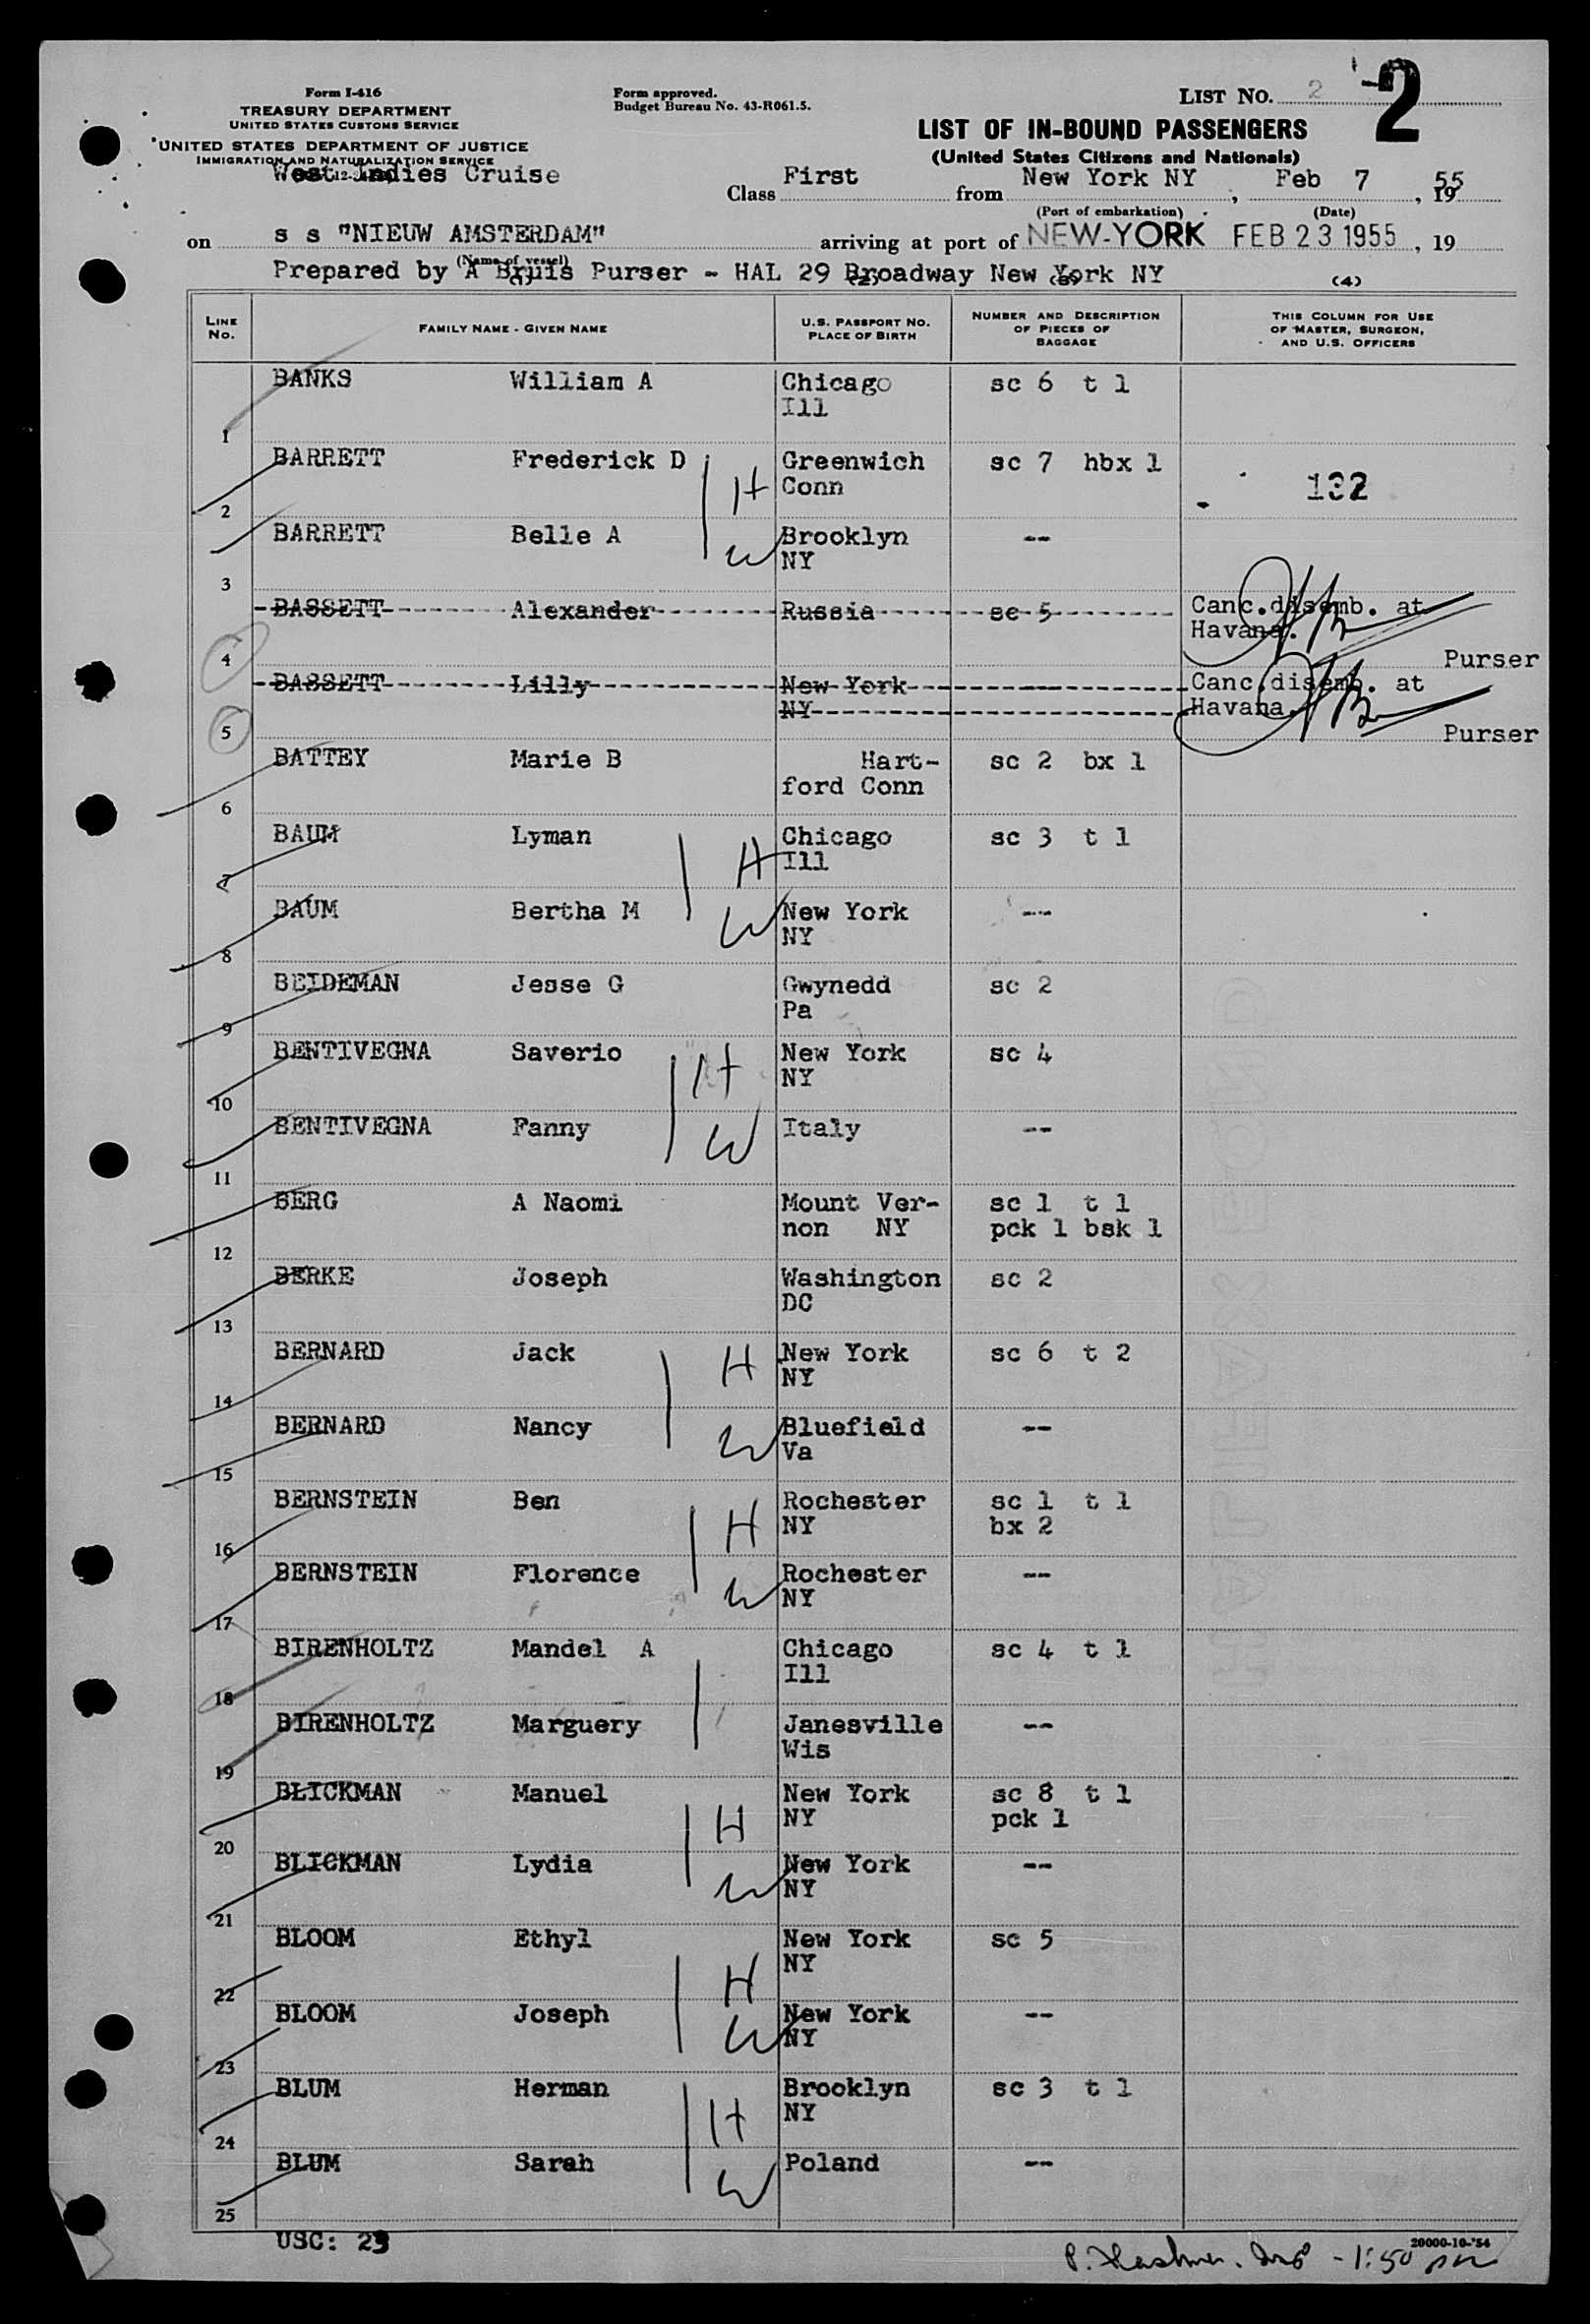 Form I-416
TREASURY DEPARTMENT
UNITED STATES CUSTOMS SERVICE
UNITED STATES DEPARTMENT OF JUSTICE
IMMIGRATION AND NATURALIZATION SERVICE
Form approved.
Budget Bureau No. 43-R061.5.
LIST NO. 2 -2
LIST OF IN-BOUND PASSENGERS
(United States Citizens and Nationals)
West Indies Cruise
Class First from New York NY, Feb 7, 1955
(Port of embarkation) (Date)
on s s "NIEUW AMSTERDAM" arriving at port of NEW-YORK FEB 23 1955, 19
(Name of vessel)
Prepared by A Bruis Purser - HAL 29 Broadway New York NY
(1) (2) (3) (4)
LINE NO. FAMILY NAME - GIVEN NAME U.S. PASSPORT NO. PLACE OF BIRTH NUMBER AND DESCRIPTION OF PIECES OF BAGGAGE THIS COLUMN FOR USE OF MASTER, SURGEON, AND U.S. OFFICERS
1 BANKS William A Chicago Ill sc 6 t 1
2 BARRETT Frederick D H Greenwich Conn sc 7 hbx 1 132
3 BARRETT Belle A W Brooklyn NY --
4 BASSETT Alexander Russia sc 5 Canc.disemb. at Havana. Purser
5 BASSETT Lilly New York NY Canc.disemb. at Havana. Purser
6 BATTEY Marie B Hart-ford Conn sc 2 bx 1
7 BAUM Lyman H Chicago Ill sc 3 t 1
8 BAUM Bertha M W New York NY --
9 BEIDEMAN Jesse G Gwynedd Pa sc 2
10 BENTIVEGNA Saverio H New York NY sc 4
11 BENTIVEGNA Fanny W Italy --
12 BERG A Naomi Mount Ver-non NY sc 1 t 1 pck 1 bsk 1
13 BERKE Joseph Washington DC sc 2
14 BERNARD Jack H New York NY sc 6 t 2
15 BERNARD Nancy W Bluefield Va --
16 BERNSTEIN Ben H Rochester NY sc 1 t 1 bx 2
17 BERNSTEIN Florence W Rochester NY --
18 BIRENHOLTZ Mandel A Chicago Ill sc 4 t 1
19 BIRENHOLTZ Marguery Janesville Wis --
20 BLICKMAN Manuel H New York NY sc 8 t 1 pck 1
21 BLICKMAN Lydia W New York NY --
22 BLOOM Ethyl H New York NY sc 5
23 BLOOM Joseph W New York NY --
24 BLUM Herman H Brooklyn NY sc 3 t 1
25 BLUM Sarah W Poland --
USC: 23
20000-10-'54
1:50 pm